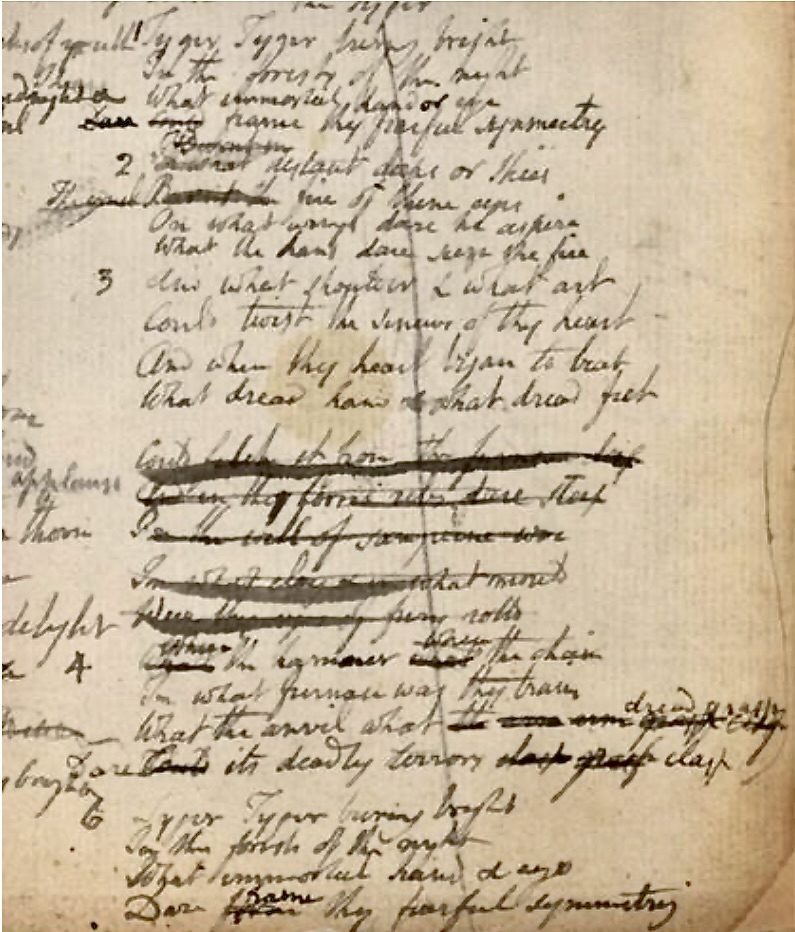 The Tyger
Tyger Tyger burning bright
In the forests of the night
What immortal hand or eye
Dare frame thy fearful symmetry
2 In what distant deeps or skies
fire of thine eyes
On what wings dare he aspire
What the hand dare sieze the fire
3 And what shoulder & what art
Could twist the sinews of thy heart
And when thy heart began to beat
What dread hand & what dread feet
Could fetch it from the furnace deep
And in thy horrid ribs dare steep
In the well of sanguine woe
In what clay & in what mould
Were thy eyes of fury rolld
where where
4 the hammer the chain
In what furnace was thy brain
dread grasp
What the anvil what the arm
Dare Could its deadly terrors clasp grasp clasp
6 Tyger Tyger burning bright
In the forests of the night
What immortal hand & eye
frame
Dare thy fearful symmetry
of youth
applause
thorn
delight
bought